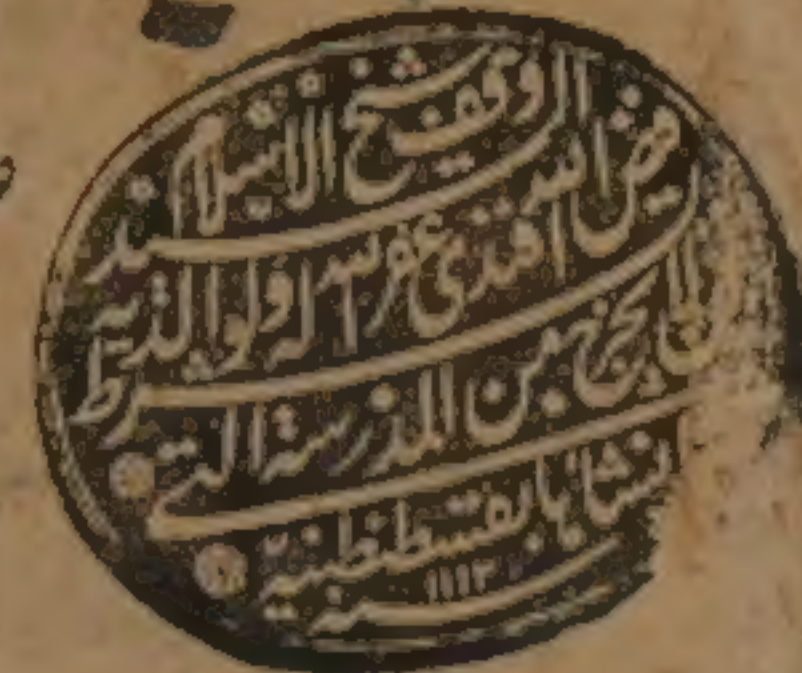 وقف شيخ الاسلام السيد
فيض الله افندى غفر الله له ولوالديه
بشرط ان لا يخرج من المدرسة التى
انشاها بقسطنطنية
سنة ١١١٣